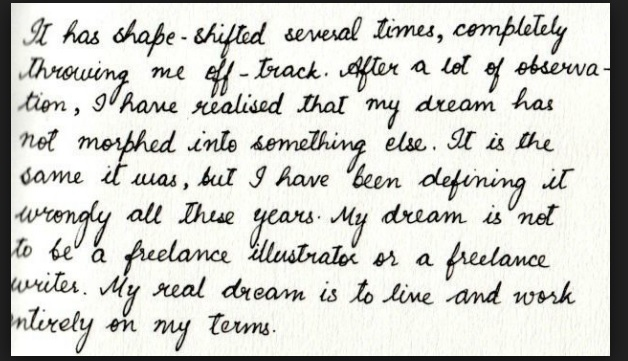 It has shape-shifted several times, completely
throwing me off-track. After a lot of observa-
tion, I have realised that my dream has
not morphed into something else. It is the
same it was, but I have been defining it
wrongly all these years. My dream is not
to be a freelance illustrator or a freelance
writer. My real dream is to live and work
ntirely on my terms.